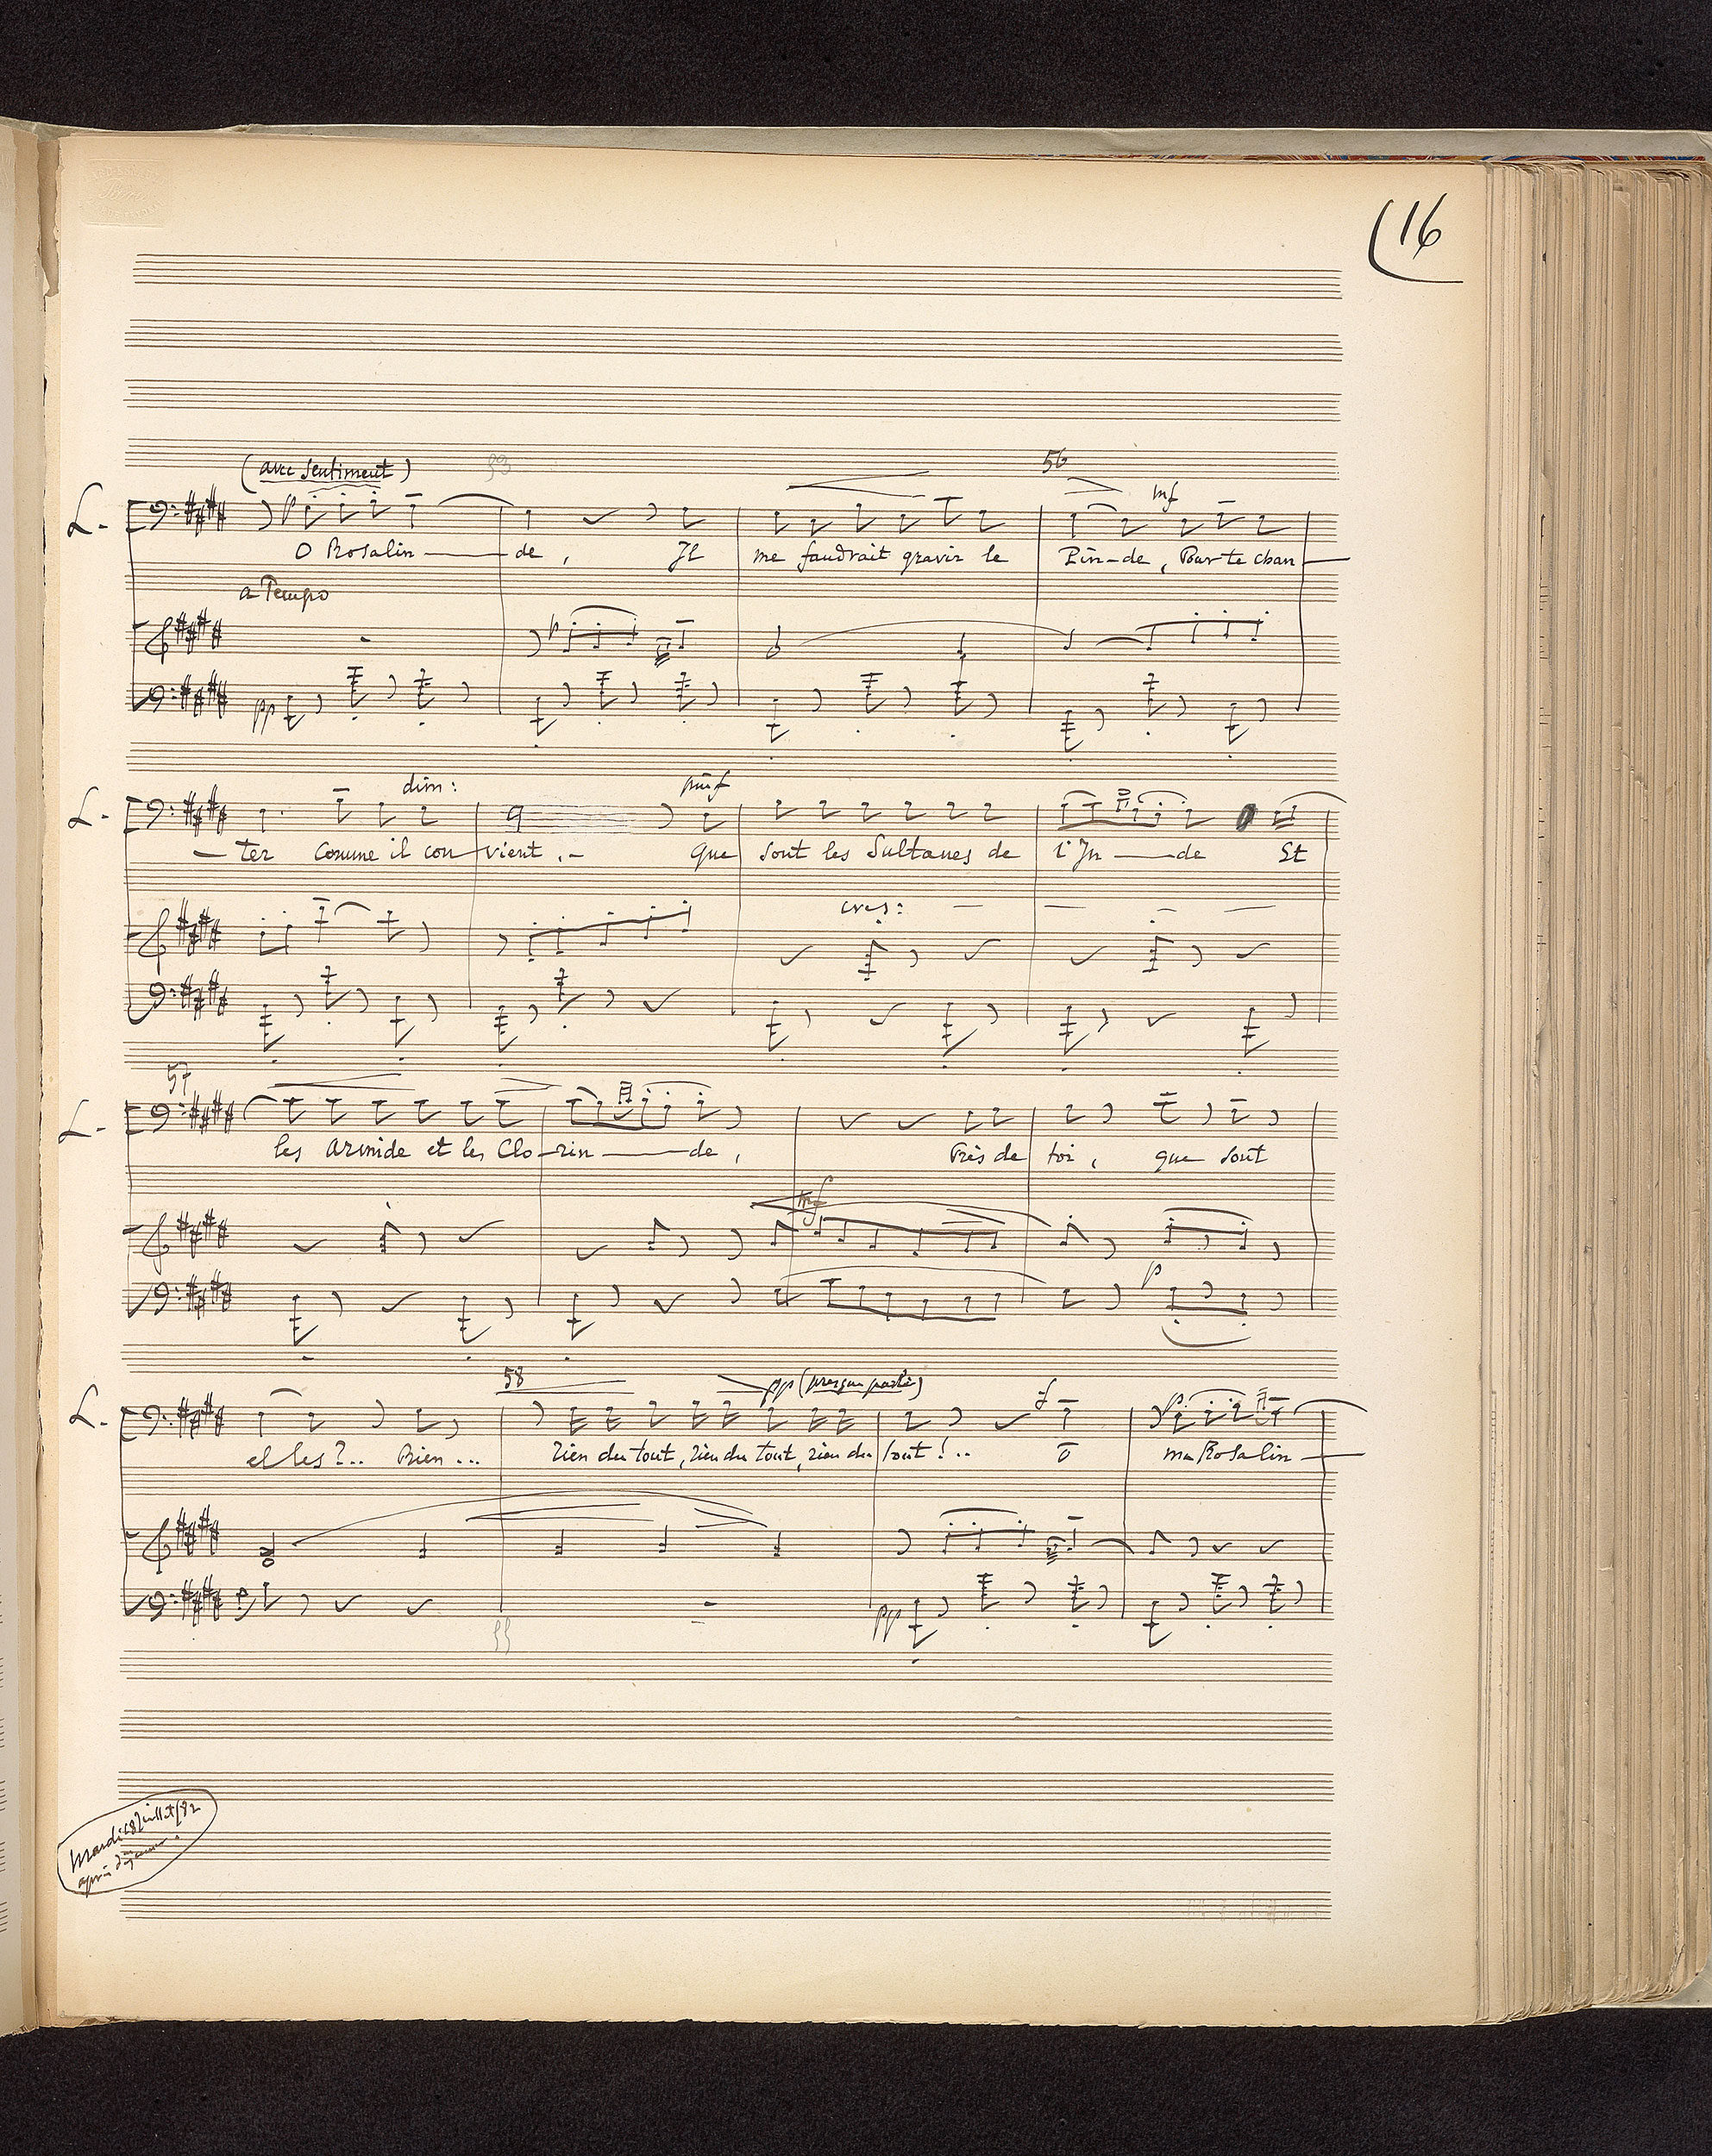 (16
(avec sentiment) 53 56
L. p mf
O Rosalin — de, Il me faudrait gravir le Pin-de, Pour te chan —
a Tempo
p
pp
dim: mf
L.
— ter comme il con vient.- Que sont les Sultanes de l'In — de Et
cres: — — — —
57
L.
les Armide et les Clo-rin — de, Près de toi, que sont
mf
p
58 pp (presque parlé) f p
L.
el les?.. Rien... rien du tout, rien du tout, rien du tout!.. O ma Rosalin —
pp
Mardi 18 Juillet/82
après déjeuner.